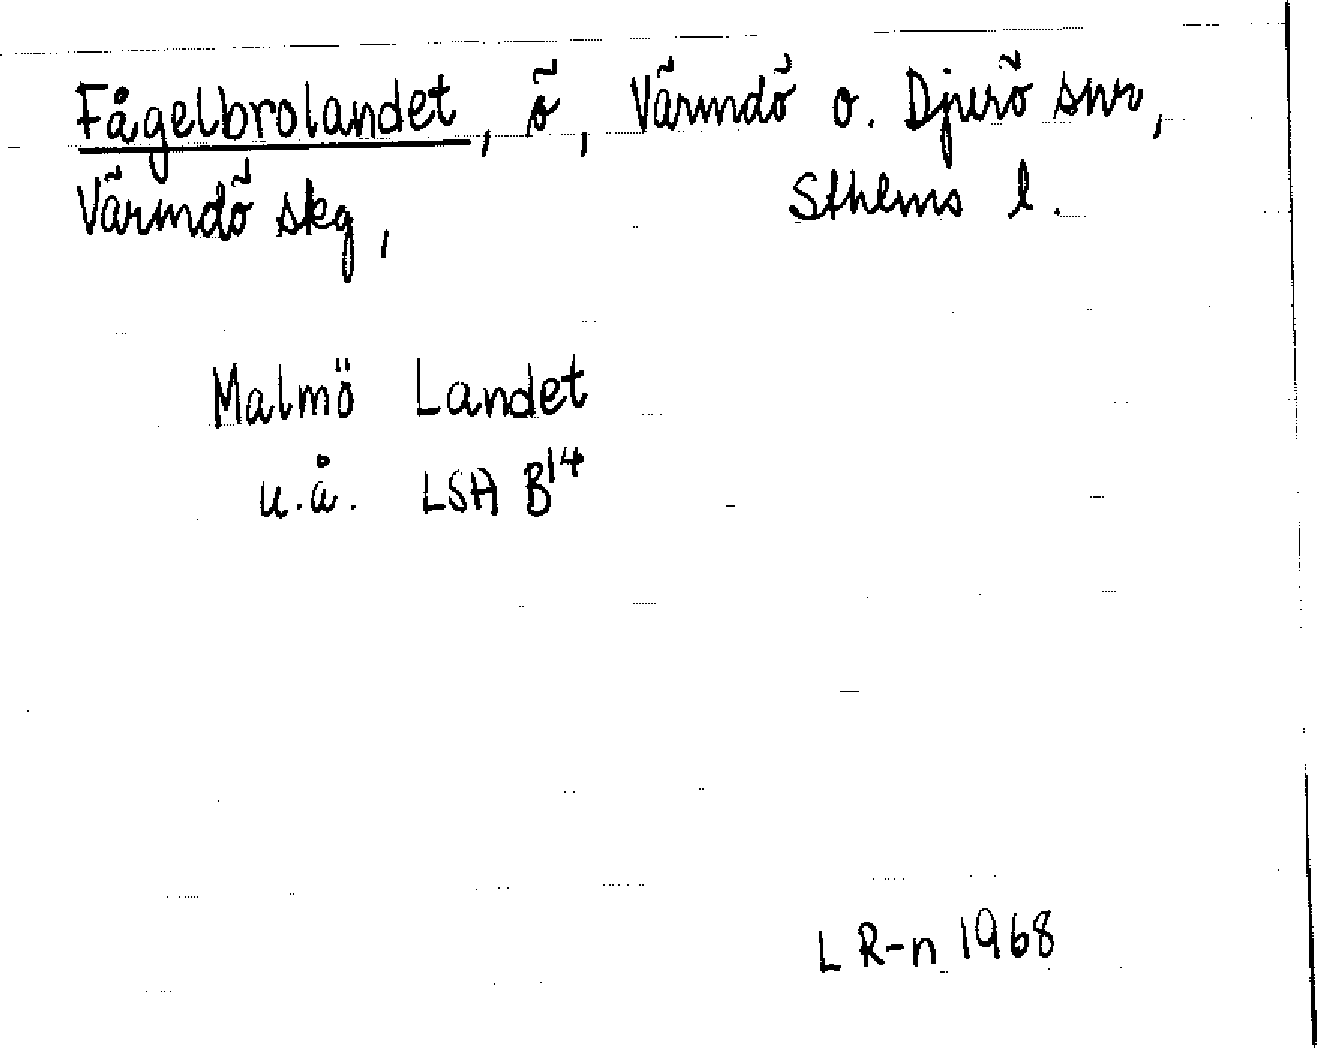 Fågelbrolandet, ö, Värmdö o. Djurö snr,
Värmdö skg, Sthlms l.
Malmö Landet
u.å. LSA B14
L R-n 1968